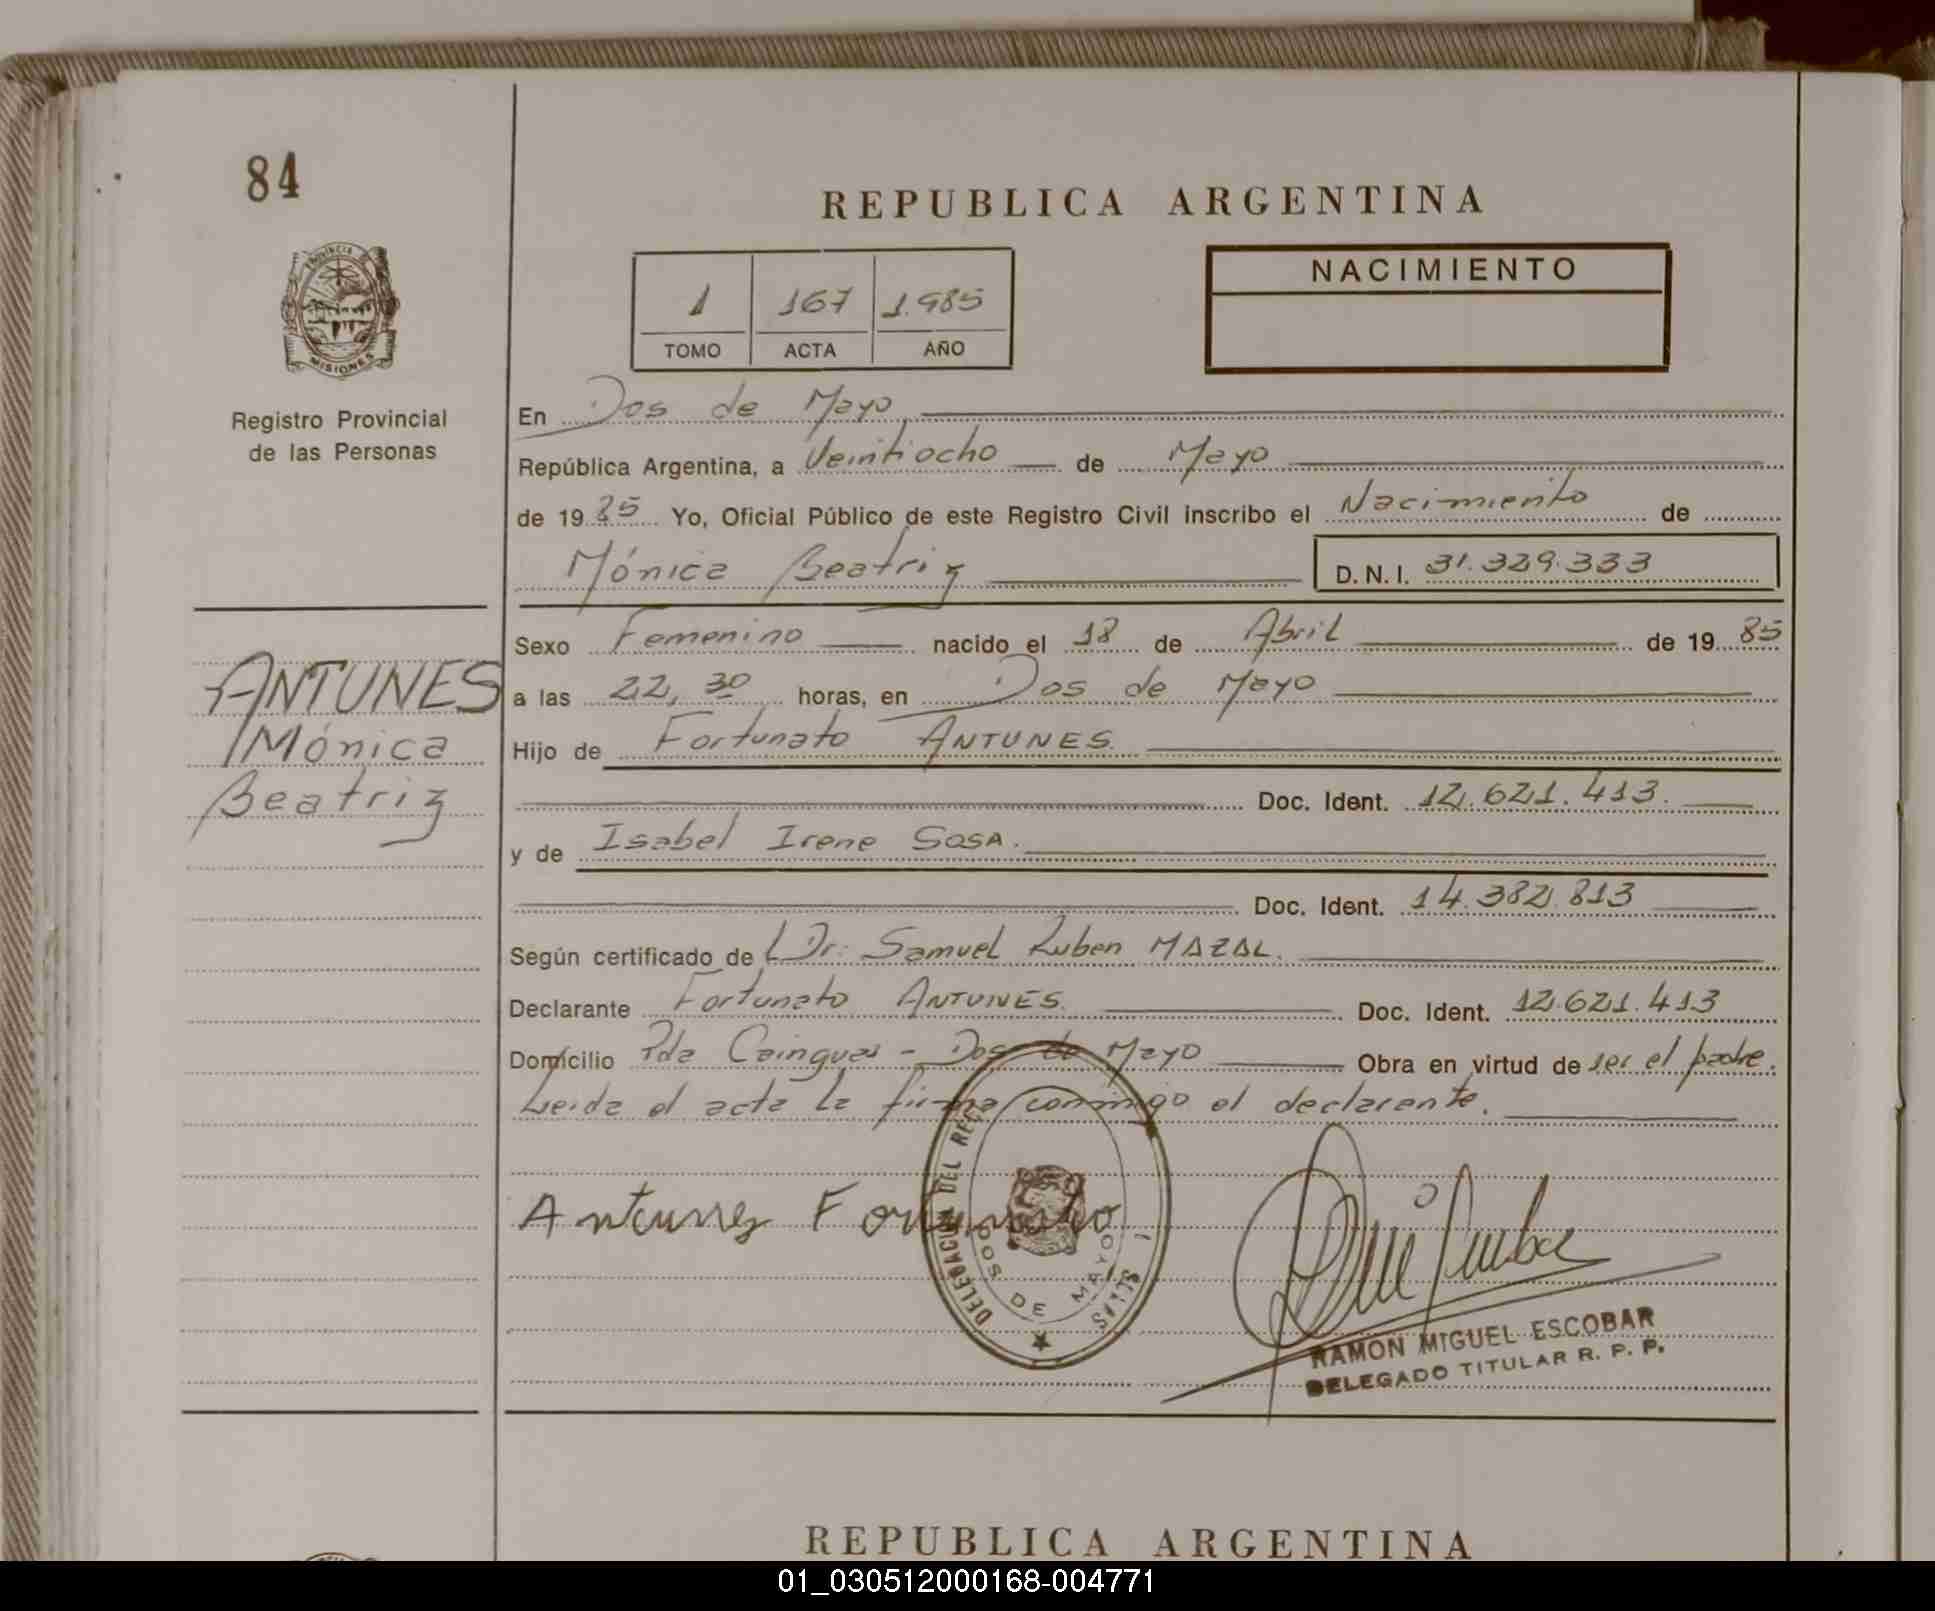 84
REPUBLICA ARGENTINA
PROVINCIA DE
MISIONES
Registro Provincial
de las Personas
1 167 1.985
TOMO ACTA AÑO
NACIMIENTO
En Dos de Mayo
República Argentina, a Veintiocho de Mayo
de 19 85 Yo, Oficial Público de este Registro Civil inscribo el Nacimiento de
Mónica Beatriz D.N.I. 31.329.333
Sexo Femenino nacido el 18 de Abril de 19 85
a las 22,30 horas, en Dos de Mayo
Hijo de Fortunato ANTUNES.
Doc. Ident. 12.621.413.
y de Isabel Irene SOSA.
Doc. Ident. 14.382.813
Según certificado de Dr: Samuel Ruben MAZAL.
Declarante Fortunato ANTUNES. Doc. Ident. 12.621.413
Domicilio Pda Cainguas - Dos de Mayo Obra en virtud de ser el padre.
Leida el acta la firma conmigo el declarante.
ANTUNES
Mónica
Beatriz
Antunes Fortunato
DELEGACION DEL REG
DOS DE MAYO
RAMON MIGUEL ESCOBAR
DELEGADO TITULAR R. P. P.
REPUBLICA ARGENTINA
01_030512000168-004771